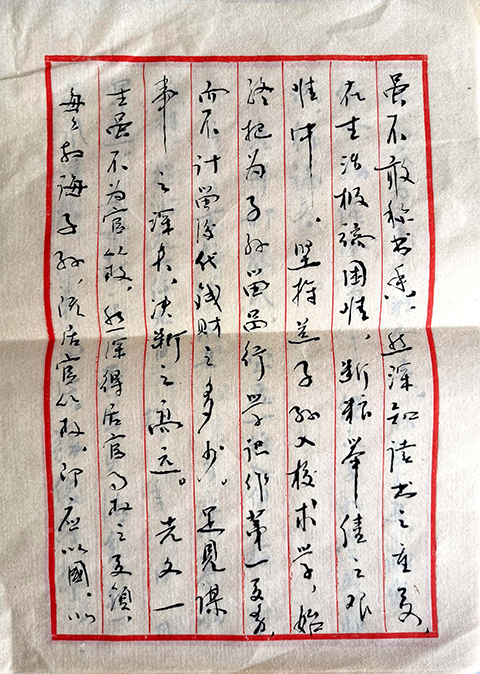 虽不敢称书香，然深知读书之重要，
在生活极端困惟，断粮举债之艰
惟中，坚持送子孙入校求学，始
终把为子孙留品行学识作第一要务，
而不计留后代钱财之多少。足见谋
事之深长，决断之高远。先父一
生虽不为官从政，然深得居官为政之要领，
每每教诲子孙，凡居官从政，即应以国，以